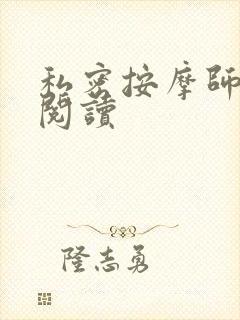 私密按摩師
閱讀
隆志勇